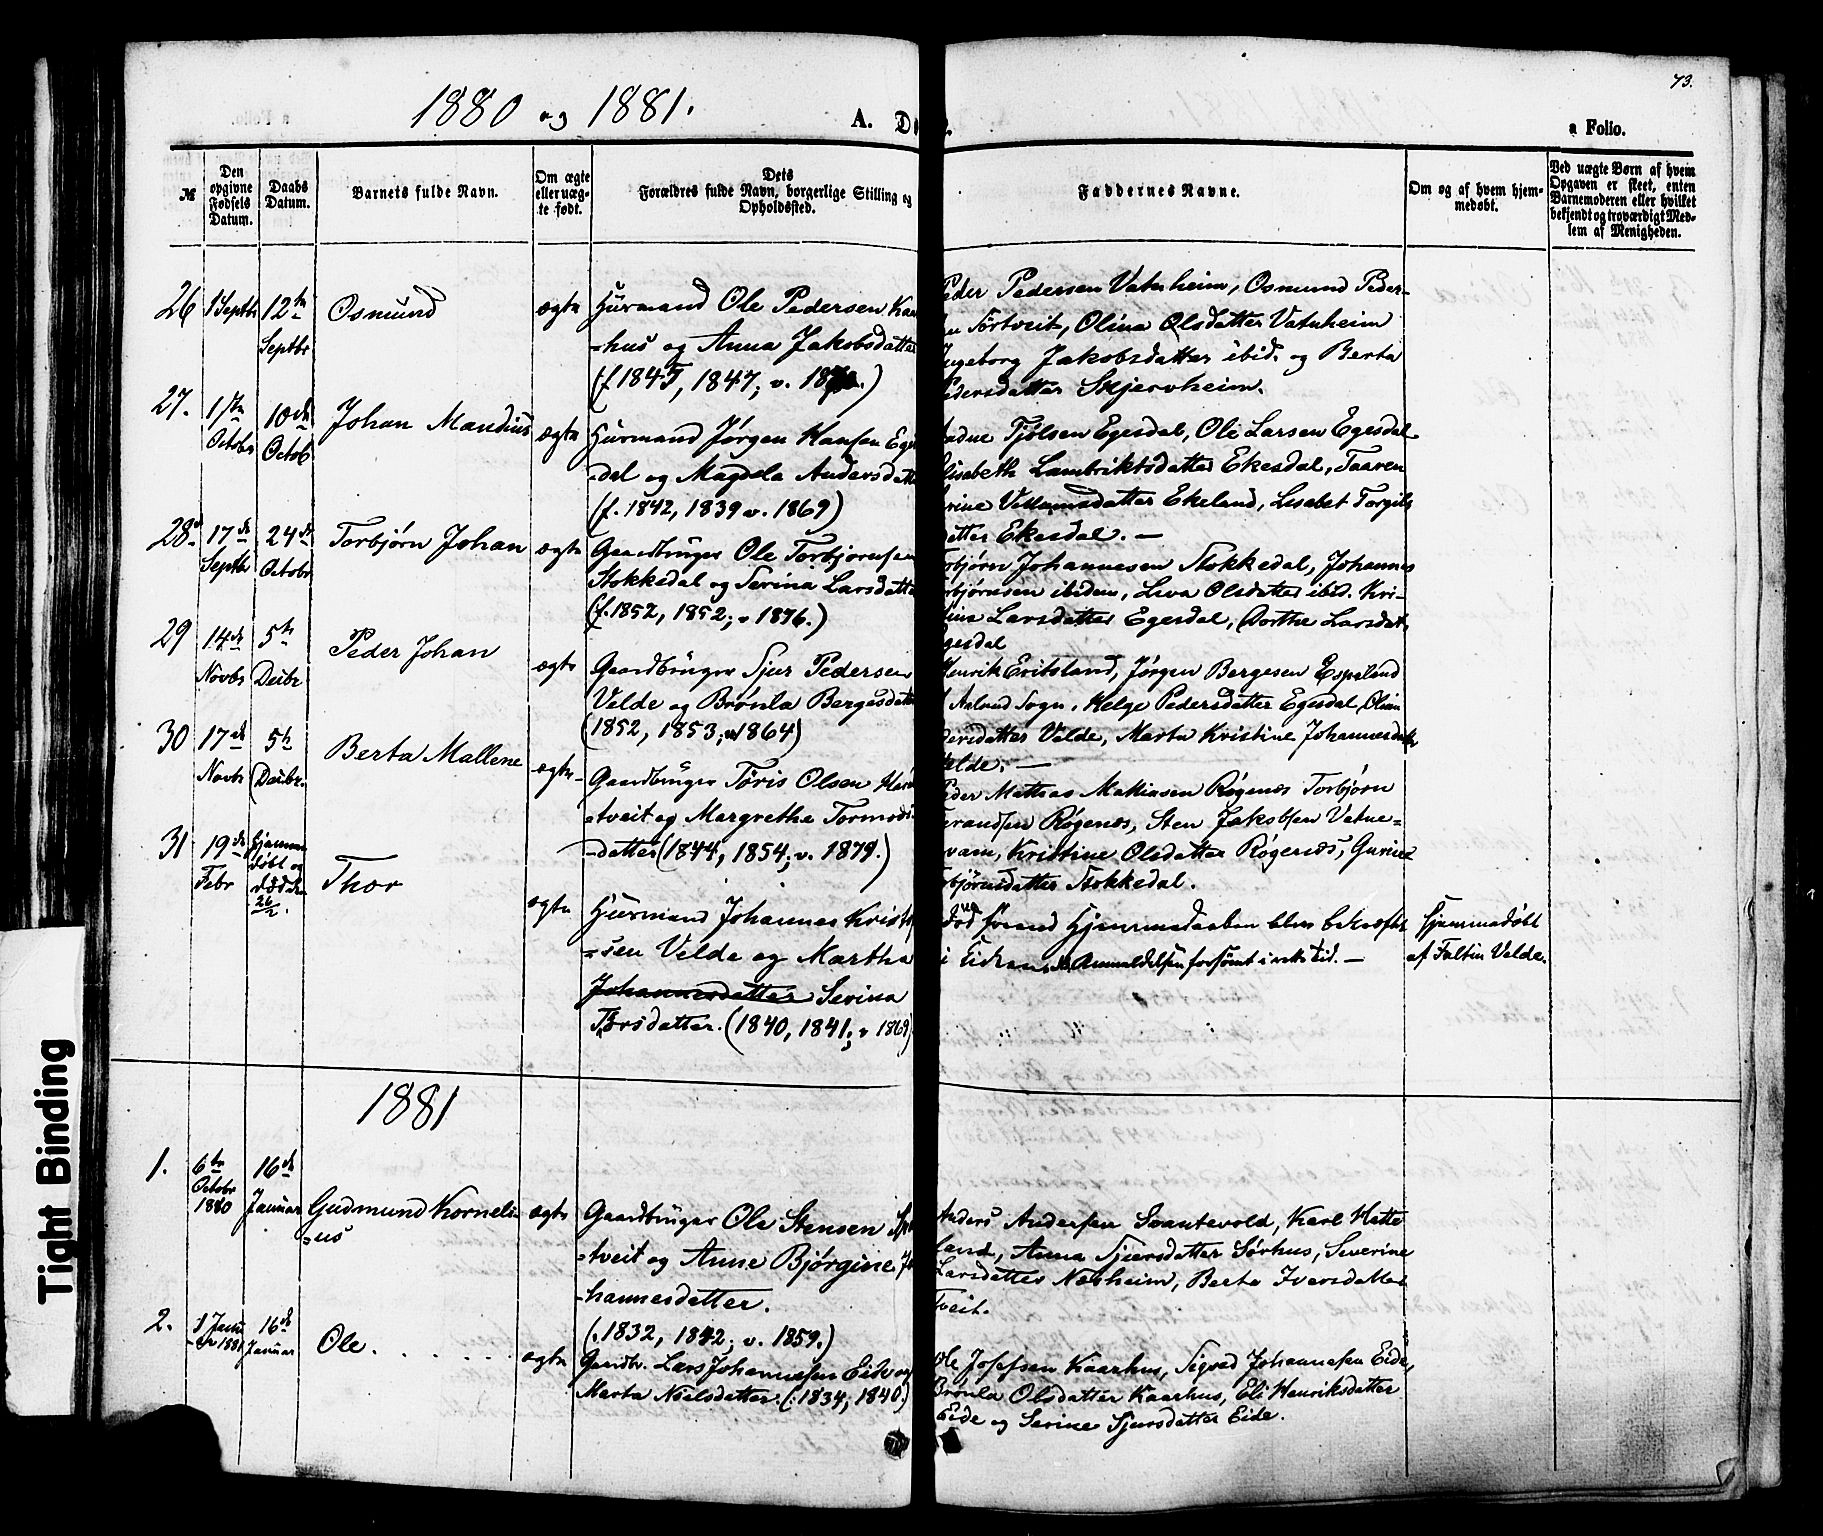 73.
1880 og 1881.
A. D
a Folio.
№
Den opgivne Fødsels Datum.
Daabs Datum.
Barnets fulde Navn.
Om ægte eller uægte født.
Dets
Forældres fulde Navn, borgerlige Stilling og
Opholdssted.
Faddernes Navne.
Om og af hvem hjemmedøbt.
Ved uægte Børn af hvem
Opgaven er skeet, enten
Barnemoderen eller hvilket
bekjendt og troværdigt Med-
lem af Menigheden.
26 1 Septbr 12te Septbr Osmund ægte
Huusmand Ole Pedersen Kaar
-hus og Anna Jakobsdatter
(f. 1845, 1847, v.
Peder Pedersen Vatnheim, Osmund Peder-
Sørtveit, Olina Olsdatter Vatnheim
Ingeborg Jakobsdatter ibid. og Berta
Pedersdatter Skjervheim.
27. 1ste Octobr 10de Octob Johan Mandius ægte
Huusmand Jørgen Hansen Eges
-dal og Magdela Andersdatt
(f. 1842, 1839 v. 1869)
Tjølsen Egesdal, Ole Larsen Egesdal
Elisabeth Lambriktsdatter Ekesdal, Taaren
Ekeland, Lisabet Torgils
datter Ekesdal. —
28. 17de Septbr 24de Octobr Torbjørn Johan ægte
Gaardbruger Ole Torbjørnsen
Stokkedal og Serina Larsdatter
(f. 1852, 1852; v 1876.)
Torbjørn Johannesen Stokkedal, Johannes
Torbjørnsen ibidem, Lava Olsdatter ibid. Kri-
Larsdatter Egesdal, Dorthe Larsdat.
Egesdal
29 14de Novbr 5te Decbr Peder Johan ægte
Gaardbruger Sjur Pedersen
Velde og Brønla Bergesdatter
(1852, 1853; v 1864)
Henrik Eritsland, Jørgen Bergesen Espeland
Sogn, Helge Pedersdatter Egesdal,
Pedersdatter Velde, Marta Kristine Johannesdatter
Velde. —
30 17de Novbr 5te Decbr. Berta Mallene ægte
Gaardbruger Tøris Olsen
-tveit og Margrethe Tormods-
-datter (1844, 1854; v. 1879.)
Peder Mathias Mathiasen Røgenæs Torbjørn
Røgenæs, Sten Jakobsen Vatne-
Kristine Olsdatter Røgenæs, Gurine
Torbjørnsdatter Stokkedal.
31 19de Febr Hjemmedøbt og død den 26/2. Thor ægte
Huusmand Johannes Krist
-sen Velde og Martha
Johannesdatter Serina
Torsdatter. (1840, 1841; v 1869)
død forend Hjemmedaaben blev bekræftet
i Kirken, da Anmeldelsen forsømt i rette Tid. —
Hjemmedøbt
af Faltin Velde.
1881
1. 6te Octobr 1880 16de Januar Gudmund Korneli-
-us ægte
Gaardbruger Ole Stensen
-tveit og Anne Bjørgine Jo
-hannesdatter.
(.1832, 1842; v. 1859.)
Anders Andersen Svantevold, Karl Hette
land, Anna Sjursdatter Sørhus, Severine
Larsdatter Nesheim, Berta Iversdatter
Tveit.
2. 1 Januar 1881 16de Januar Ole. ægte
Gaardbr. Lars Johannessen Eide og
Marta Nielsdatter. (.1834, 1840)
Ole Josefsen Kaarhus, Sigvad Johannesen Eide,
Brønla Olsdatter Kaarhus, Eli Henriksdatter
Eide og Serine Sjursdatter Eide.
Tight Binding